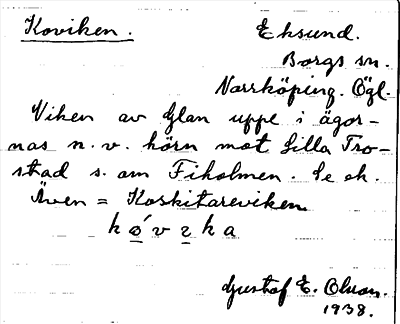 Koviken. Eksund.
Borgs sn.
Norrköping. Ögl.
Viken av Glan uppe i ägor-
nas n.v. hörn mot Lilla Tro-
stad s. om Fiholmen. Se ek.
Även = Koskitareviken
Gustaf E. Olson.
1938.